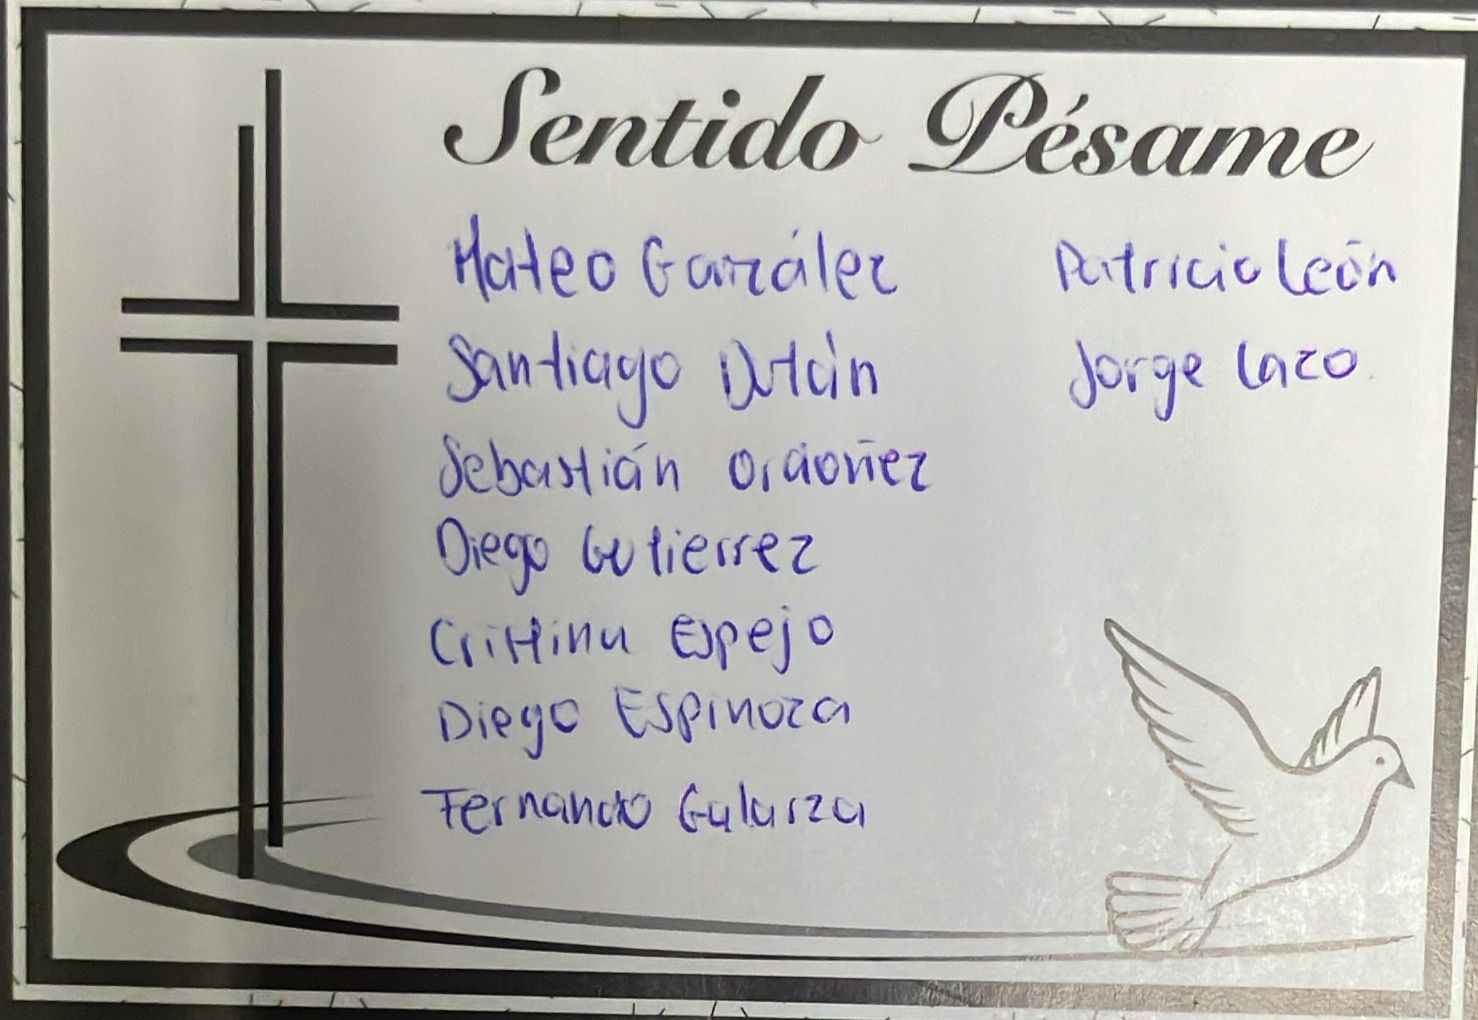 Sentido Pésame
Mateo González
Santiago Dután
Sebastián Ordoñez
Diego Gutierrez
Cristina Espejo
Diego Espinoza
Fernando Galarza
Patricio León
Jorge Lazo